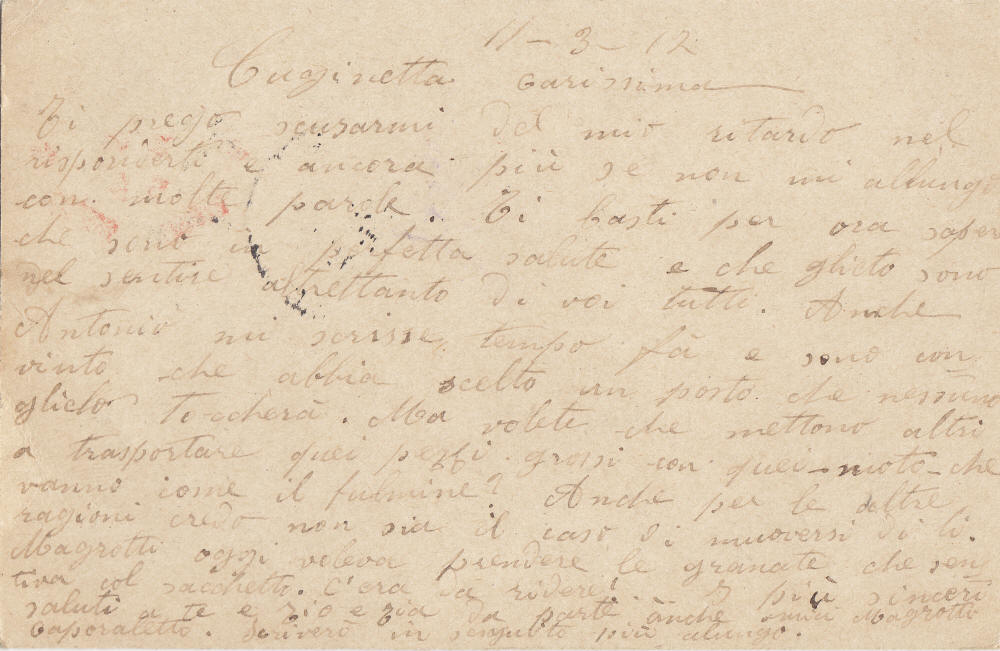 11-3-12
Cuginetta carissima
Ti prego scusarmi del mio ritardo nel
risponderti e ancora più se non mi allungo
con molte parole. Ti basti per ora saper
che sono in perfetta salute e che glieto sono
nel sentire altrettanto di voi tutti. Anche
Antonio mi scrisse tempo fà e sono con
vinto che abbia scelto un posto che nessuno
glielo toccherà. Ma volete che mettono altri
a trasportare quei pezzi grossi con quei-moto-che
vanno come il fulmine? Anche per le altre
ragioni credo non sia il caso di muoversi di li.
Magrotti oggi voleva prendere le granate che sen
tiva col sacchetto. C'era da ridere! I più sinceri
saluti a te e zio e zia da parte anche Magrotti
Caporaletto. Scriverò in seguito più alungo.